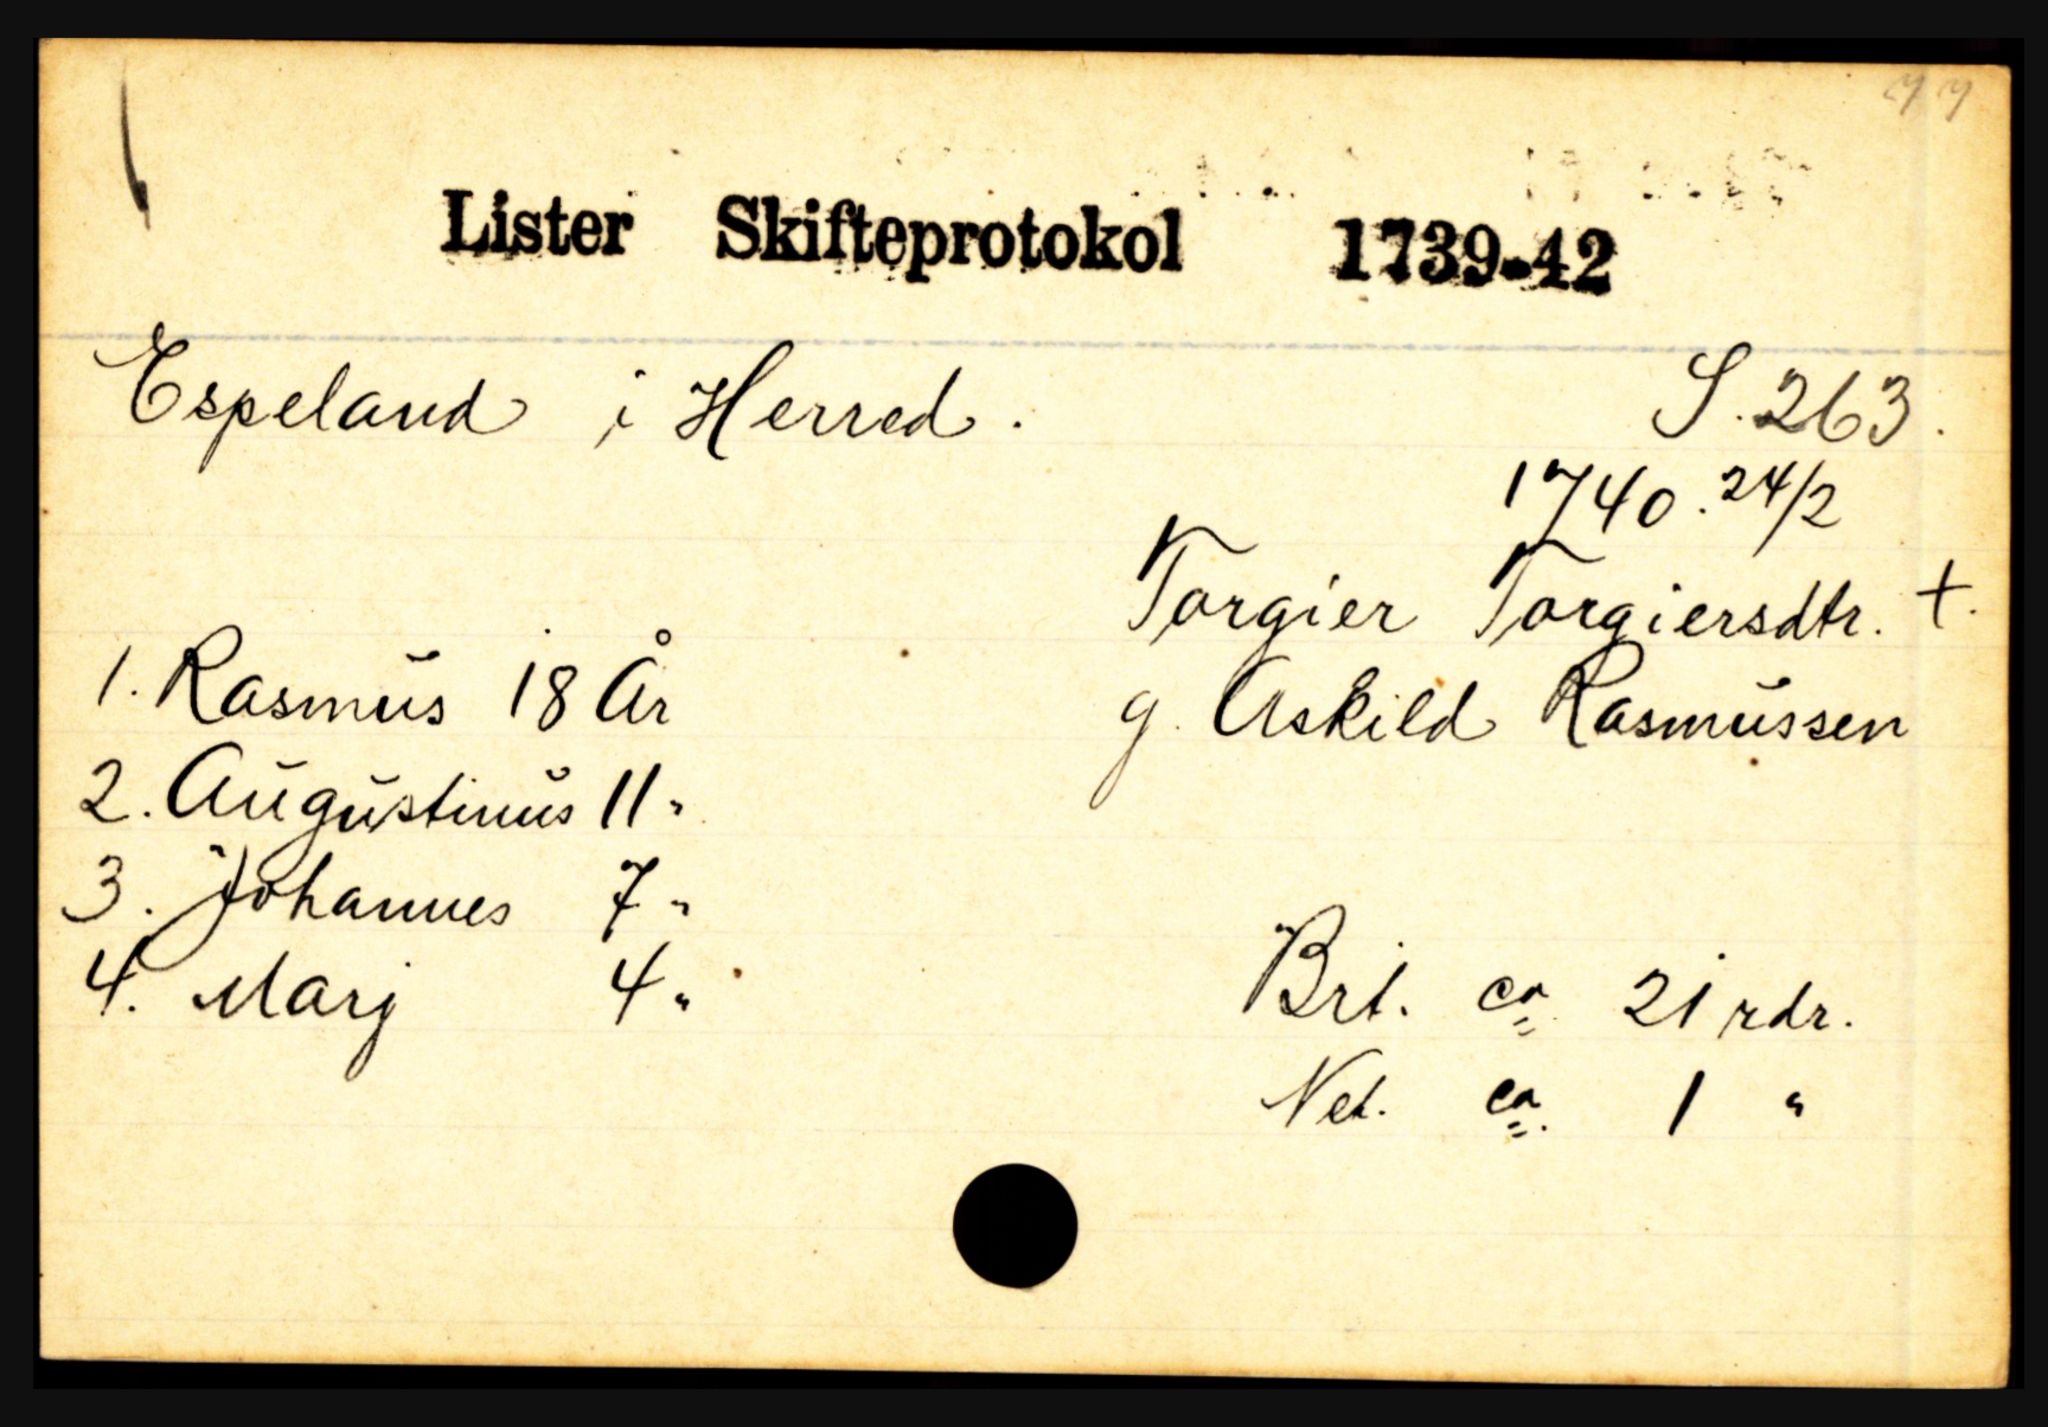 77
Lister Skifteprotokol 1739-42
Espeland i Herred.
S. 263.
1740. 24/2
Torgier Torgiersdtr. +.
g. Askild Rasmussen
1. Rasmus 18 År
2. Augustinus 11 "
3. Johannes 7 "
4. Marj 4 "
Brt. ca. 21 rdr.
Net. ca. 1 "